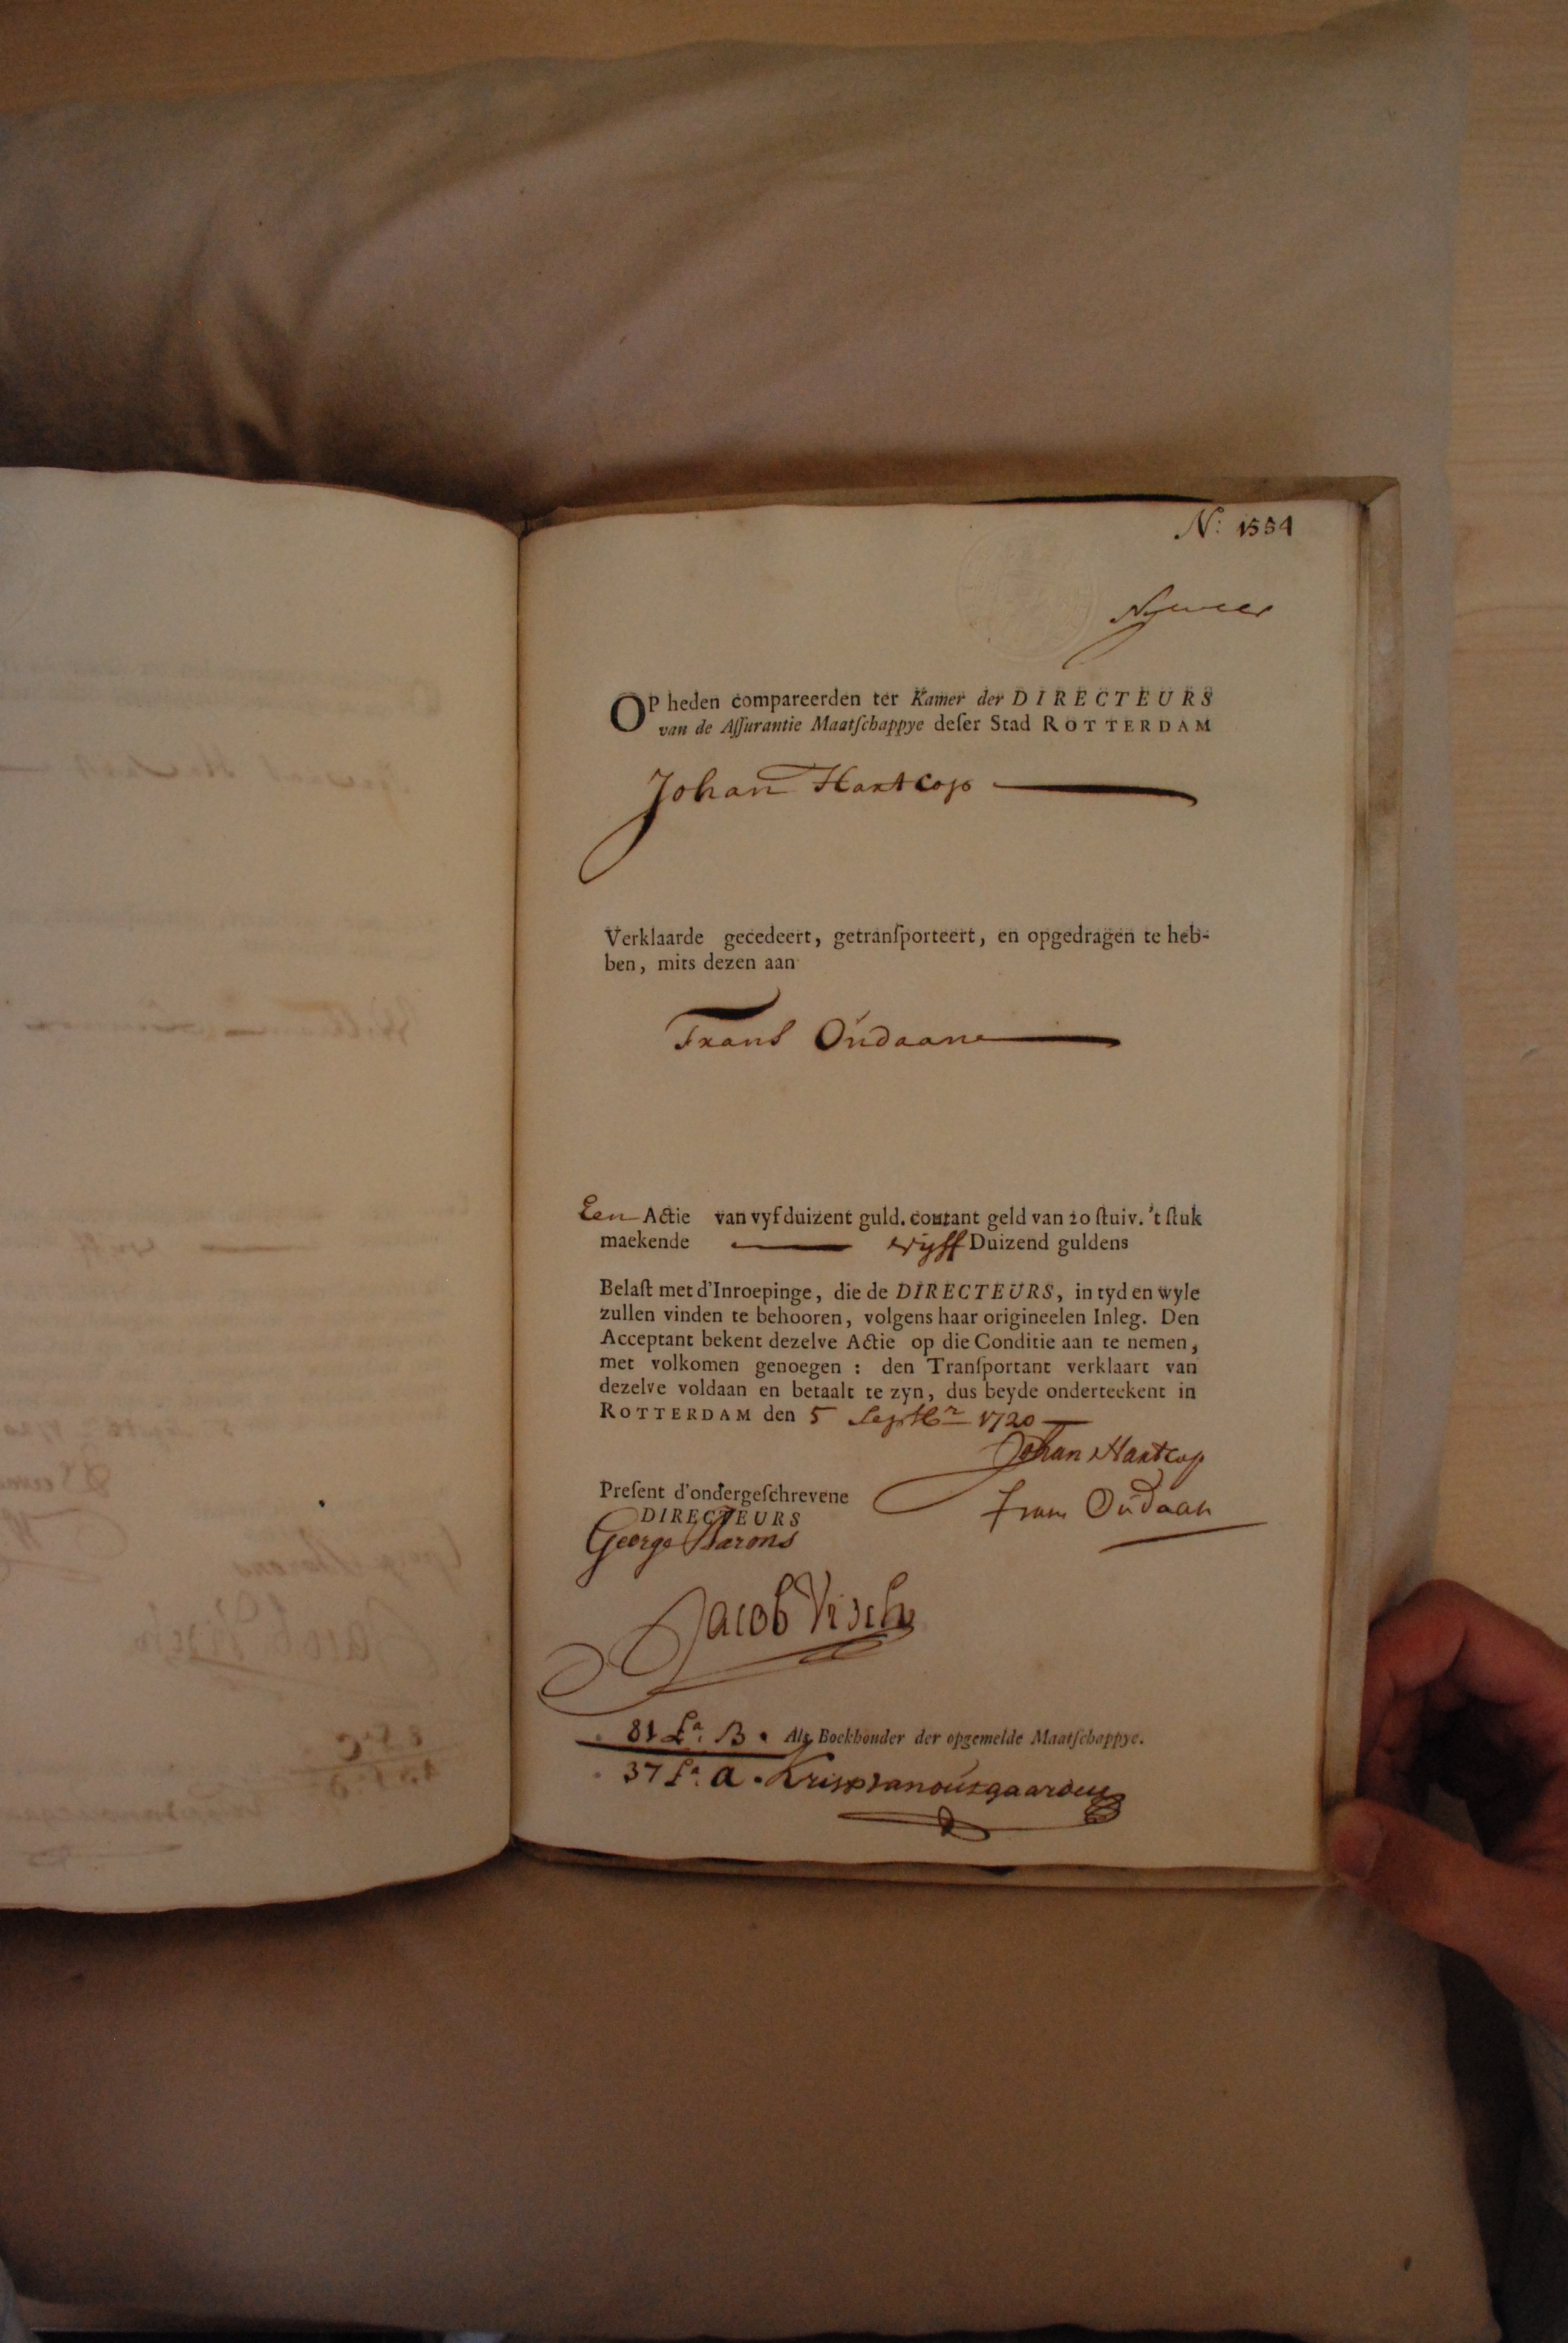 N: 1554
OP heden compareerden ter Kamer der DIRECTEURS
van de Aſſurantie Maatſchappye deſer Stad ROTTERDAM
Johan Hartcop
Verklaarde gecedeert, getranſporteert, en opgedragen te heb-
ben, mits dezen aan
Frans Oudaane
Een Actie van vyf duizent guld. courant geld van 20 ſtuiv. 't ſtuk
maekende vyff Duizend guldens
Belaſt met d'Inroepinge, die de DIRECTEURS, in tyd en wyle
zullen vinden te behooren, volgens haar origineelen Inleg. Den
Acceptant bekent dezelve Actie op die Conditie aan te nemen,
met volkomen genoegen : den Tranſportant verklaart van
dezelve voldaan en betaalt te zyn, dus beyde onderteekent in
ROTTERDAM den 5 Septbr 1720
Johan Hartcop
Preſent d'ondergeſchrevene
Frans Oudaan
DIRECTEURS
George Barons
Jacob Visch
81 La. B. Als Boekhouder der opgemelde Maatſchappye.
37 La. a.